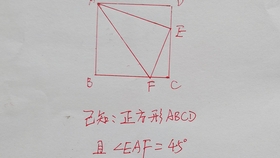 A D
E
B F C
已知:正方形ABCD
且∠EAF=45°